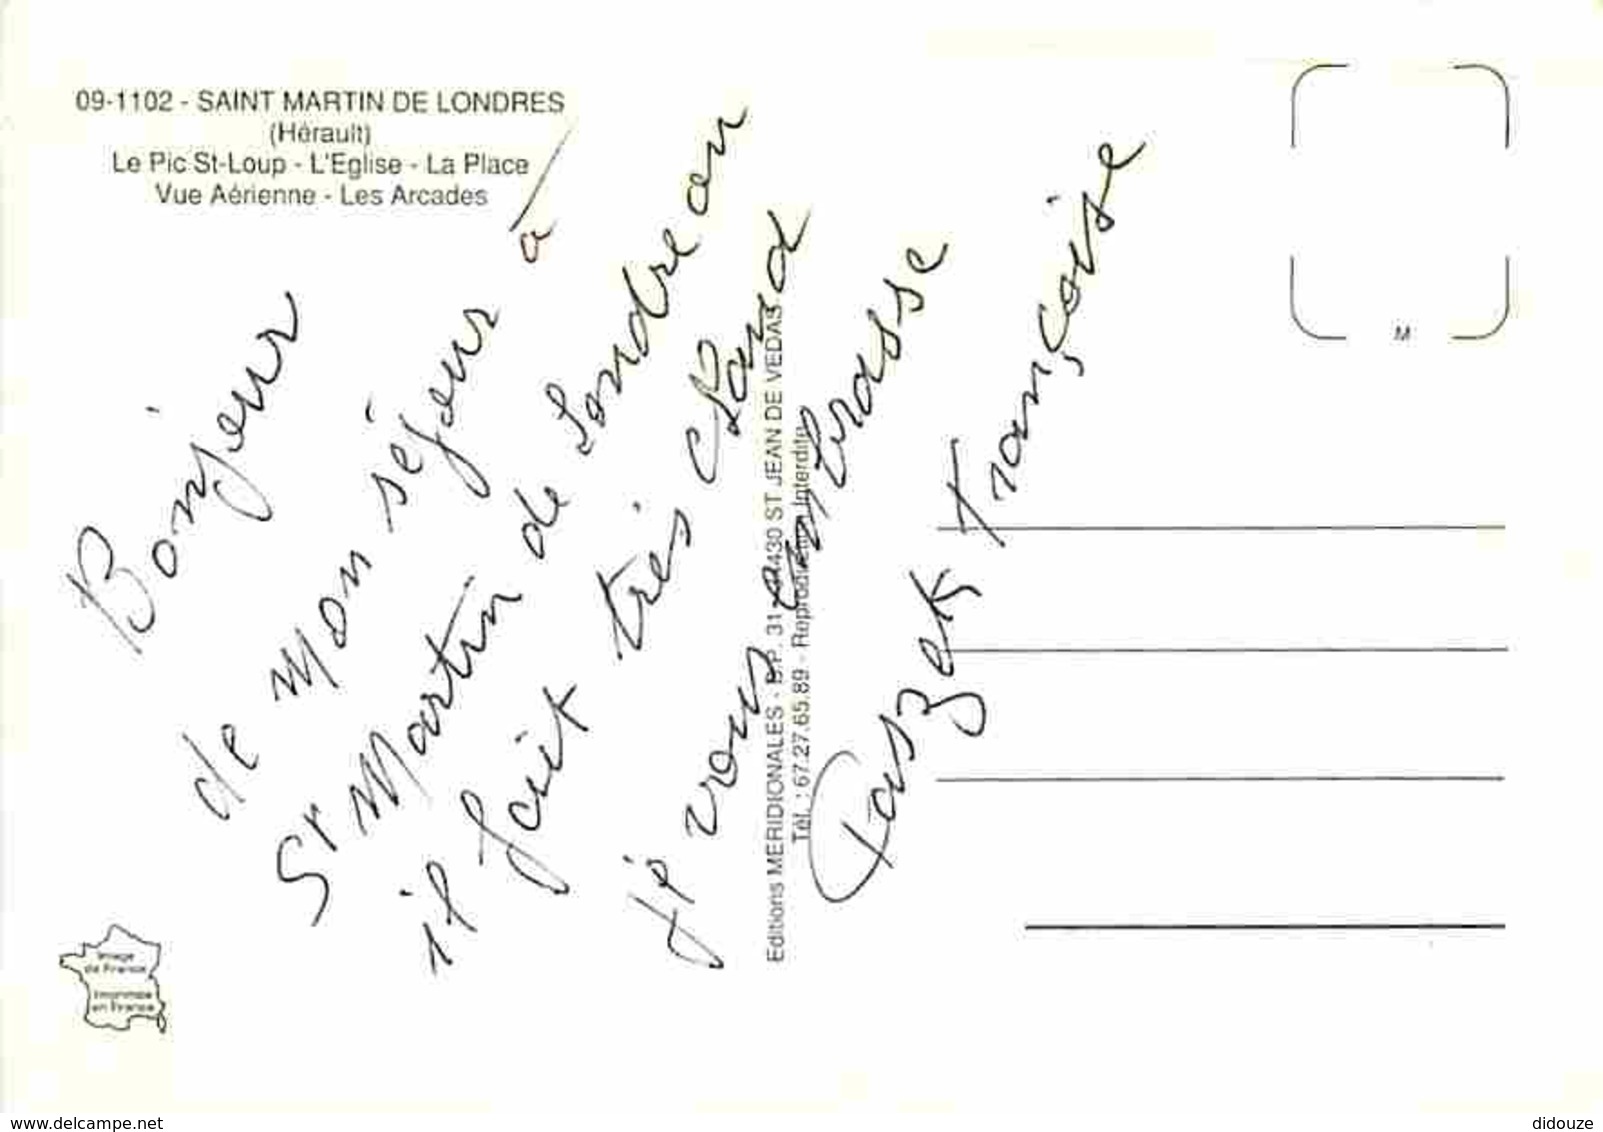 09-1102 - SAINT MARTIN DE LONDRES
(Hérault)
Le Pic St-Loup - L'Eglise - La Place
Vue Aérienne - Les Arcades
Bonjour
de mon séjour à
St Martin de Londre on
il fait très chaud
je vous embrasse
Françoise
Editions MERIDIONALES - B.P. 31 - 34430 ST JEAN DE VEDAS
Tél. : 67.27.65.89 - Reproduction Interdite
M
Image
de France
Imprimée
en France
www.delcampe.net
didouze